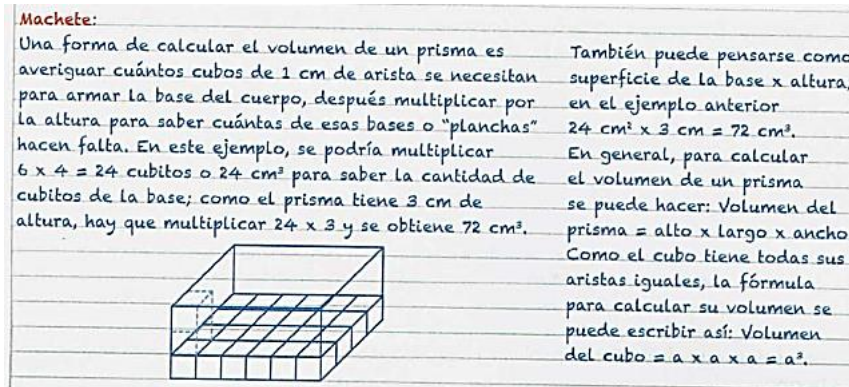 Machete:
Una forma de calcular el volumen de un prisma es
averiguar cuántos cubos de 1 cm de arista se necesitan
para armar la base del cuerpo, después multiplicar por
la altura para saber cuántas de esas bases o "planchas"
hacen falta. En este ejemplo, se podría multiplicar
6 x 4 = 24 cubitos o 24 cm³ para saber la cantidad de
cubitos de la base; como el prisma tiene 3 cm de
altura, hay que multiplicar 24 x 3 y se obtiene 72 cm³.
También puede pensarse como
superficie de la base x altura,
en el ejemplo anterior
24 cm² x 3 cm = 72 cm³.
En general, para calcular
el volumen de un prisma
se puede hacer: Volumen del
prisma = alto x largo x ancho
Como el cubo tiene todas sus
aristas iguales, la fórmula
para calcular su volumen se
puede escribir así: Volumen
del cubo = a x a x a = a³.